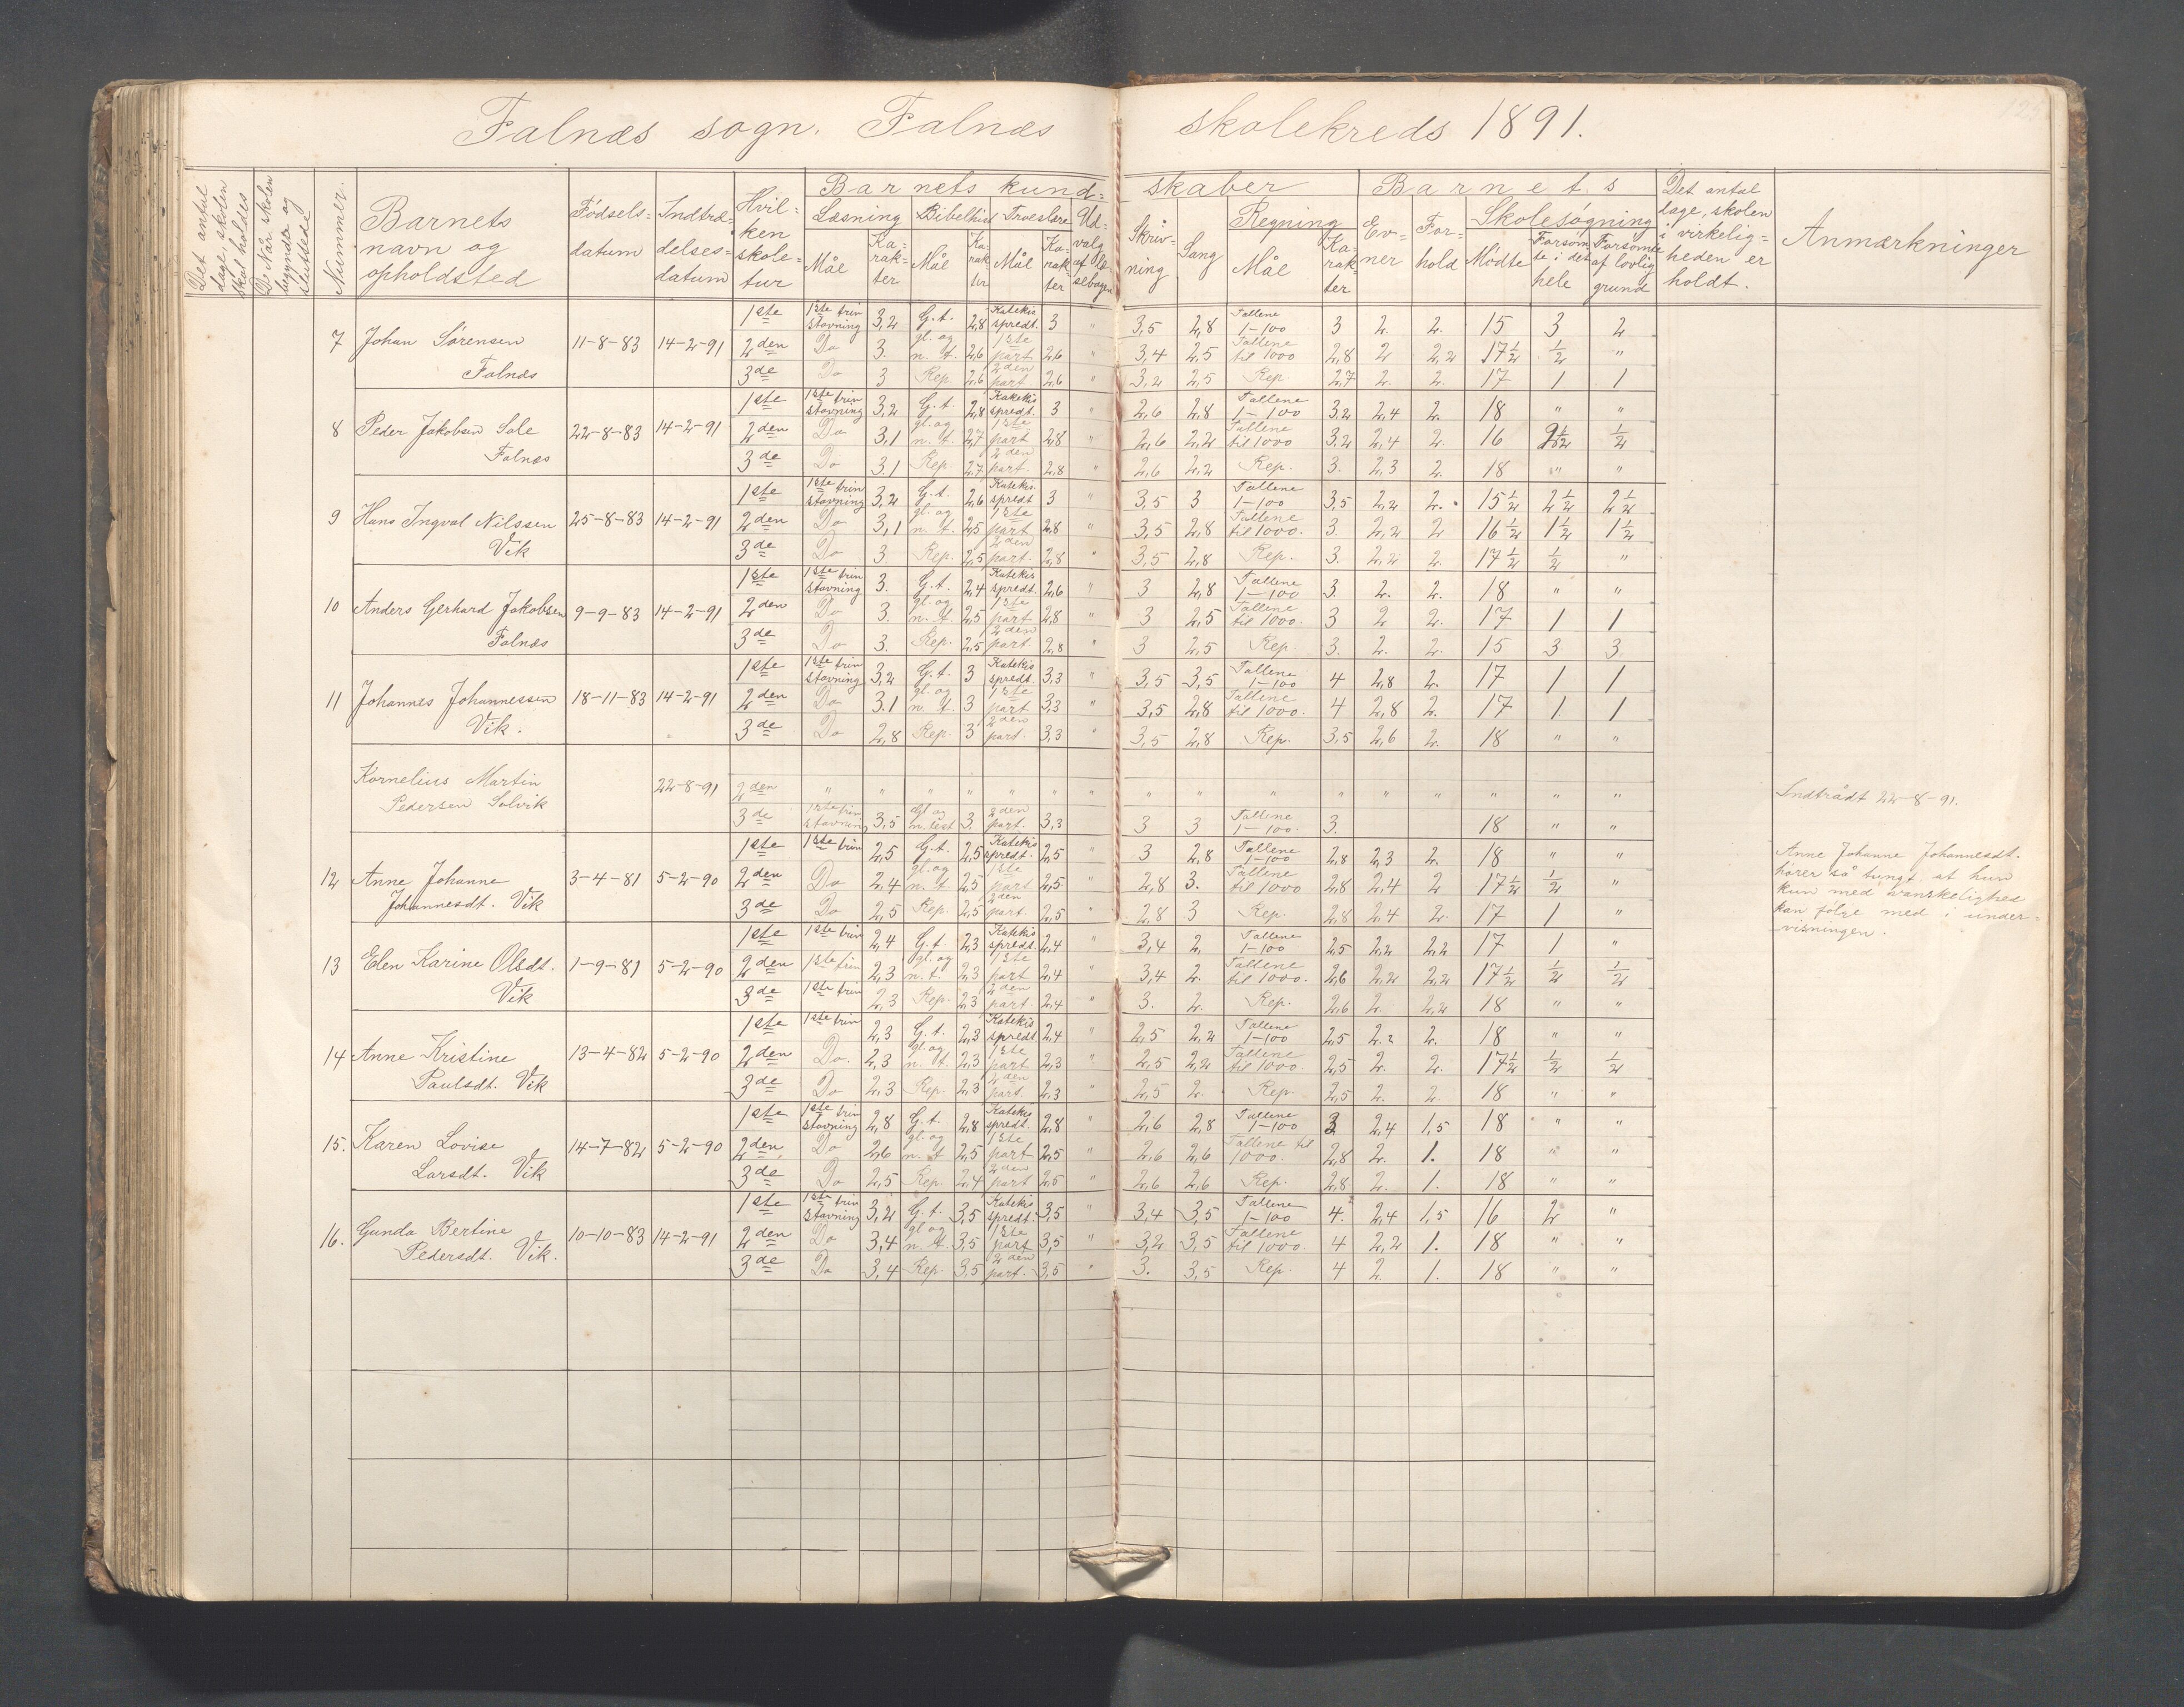 Falnæs sogn. Falnæs skolekreds 1891.
Det antal dage, skolen skal holdes
De Når skolen begyndte og sluttede
Nummer.
Barnets navn og opholdsted
Fødselsdatum
Indtrædelsesdatum
Hvilken skoletur
Barnets kundskaber
Læsning Bibelhist Troeslære Udvalg af Læsebogen
Mål Karakter Mål Karakter Mål Karakter
Skrivning Sang Regning Mål Karakter
Barnets
Evner Forhold Skolesøgning
Mødte Forsømte i det hele Forsømte af lovlig grund
Det antal dage, skolen i virkeligheden er holdt.
Anmærkninger
7 Johan Sørensen Falnæs 11-8-83 14-2-91
1ste 1ste trin stavning 3,2 G.t. 2,8 Katekis spredt. 3 " 3,5 2,8 Tallene 1-100 3 2. 2. 15 3 2
2den Do 3. gl. og n. t. 2,6 1ste part 2,6 " 3,4 2,5 Tallene til 1000 2,8 2 2,2 17½ ½ "
3de Do 3 Rep. 2,6 2den part 2,6 " 3,2 2,5 Rep. 2,7 2. 2. 17 1 1
8 Peder Jakobsen Sale Falnæs 22-8-83 14-2-91
1ste 1ste trin stavning 3,2 G.t. 2,8 Katekis spredt. 3 " 2,6 2,8 Tallene 1-100 3.2 2,4 2. 18 " "
2den Do 3,1 gl. og n. t. 2,7 1ste part 2,8 " 2,6 2,2 Tallene til 1000 3.2 2,4 2. 16 2½ ½
3de Do 3.1 Rep. 2,7 2den part. 2,8 " 2,6 2,2 Rep. 3. 2,3 2. 18 " "
9 Hans Ingval Nilssen Vik 25-8-83 14-2-91
1ste 1ste trin stavning 3,2 G.t. 2,6 Katekis. spredt 3 " 3,5 3 Tallene 1-100 3,5 2,2 2. 15½ 2½ 2½
2den Do 3,1 gl. og n. t. 2,5 1ste part 2,8 " 3,5 2,8 Tallene til 1000. 3. 2,2 2 16½ 1½ 1½
3de Do 3. Rep. 2,5 2den part. 2,8 " 3,5 2,8 Rep. 3. 2,2 2. 17½ ½ "
10 Anders Gerhard Jakobsen Falnæs 9-9-83 14-2-91
1ste 1ste trin stavning 3. G.t. 2,4 Katekis spredt. 2,6 " 3 2,8 Tallene 1-100 3. 2. 2. 18 " "
2den Do 3. gl. og n. t. 2,5 1ste part 2,8 " 3 2,5 Tallene til 1000. 3 2 2. 17 1 1
3de Do 3. Rep. 2,5 2den part. 2,8 " 3 2,5 Rep. 3. 2. 2. 15 3 3
11 Johannes Johannessen Vik. 18-11-83 14-2-91
1ste 1ste trin stavning 3,2 G.t. 3 Katekis spredt. 3,3 " 3,5 3,5 Tallene 1-100 4 2,8 2. 17 1 1
2den Do 3.1 gl. og n. t. 3 1ste part 3,3 " 3,5 2,8 Tallene til 1000. 4 2,8 2. 17 1 1
3de Do 2,8 Rep. 3 2den part. 3,3 " 3,5 2,8 Rep. 3,5 2,6 2. 18 " "
Kornelius Martin Pedersen Solvik 22-8-91
2den " " " " " " " " " " " " " " " " Indtrådt 22-8-91.
3de 1ste trin stavning 3,5 Gl og n. test 3. 2den part. 3,3 3 3 Tallene 1-100. 3. 18 " "
12 Anne Johanne Johannesdt. Vik 3-4-81 5-2-90
1ste 1ste trin 2,5 G.t. 2,5 Katekis spredt. 2,5 " 3 2,8 Tallene 1-100 2,8 2,3 2. 18 " "
2den Do 2,4 gl. og n. t. 2,5 1ste part 2,5 " 2,8 3. Tallene til 1000 2,8 2,4 2 17½ ½ "
3de Do 2,5 Rep. 2,5 2den part. 2,5 " 2,8 3 Rep 2,8 2,4 2. 17 1 "
Anne Johanne Johannesdt.
hører så tungt at hun
kun med vanskelighed
kan følge med i under-
visningen.
13 Elen Karine Olsdt. Vik 1-9-81 5-2-90
1ste 1ste trin 2,4 G.t. 2,3 Katekis spredt. 2,4 " 3,4 2. Tallene 1-100 2,5 2,2 2,2 17 1 "
2den 1ste trin 2,3 gl. og n. t. 2,3 1ste part 2,4 " 3,4 2. Tallene til 1000. 2,6 2,2 2,2 17½ ½ ½
3de 1ste trin 2,3 Rep. 2,3 2den part. 2,4 " 3. 2. Rep. 2,6 2. 2,2 18 " "
14 Anne Kristine Paulsdt. Vik 13-4-82 5-2-90
1ste 1ste trin 2,3 G.t. 2,3 Katekis spredt. 2,4 " 2,5 2,2 Tallene 1-100 2,5 2.2 2. 18 " "
2den Do. 2,3 gl. og n. t. 2,3 1ste part 2,3 " 2,5 2,2 Tallene til 1000. 2,5 2. 2. 17½ ½ ½
3de Do 2,3 Rep. 2,3 2den part. 2,3 " 2,5 2. Rep. 2,5 2. 2. 18 " "
15. Karen Lovise Larsdt. Vik 14-7-82 5-2-90
1ste 1ste trin stavning 2,8 G.t. 2,8 Katekis spredt. 2,8 " 2,6 2,8 Tallene 1-100 3 2,4 1,5 18 " "
2den Do 2,6 gl. og n. t 2,5 1ste part 2,5 " 2,6 2,6 Tallene til 1000. 2,8 2. 1. 18 " "
3de Do 2,5 Rep. 2,4 2den part 2,5 " 2,6 2,6 Rep. 2,8 2. 1. 18 " "
16. Gunda Bertine Pedersdt. Vik. 10-10-83 14-2-91
1ste 1ste trin stavning 3,2 G.t. 3,5 Katekis spredt. 3,5 " 3,4 3,5 Tallene 1-100 4. 2,4 1,5 16 2 "
2den Do 3,4 gl og n. t. 3,5 1ste part 3,5 " 3,2 3,5 Tallene til 1000. 4 2,2 1. 18 " "
3de Do 3,4 Rep. 3,5 2den part. 3,5 " 3. 3,5 Rep. 4 2. 1. 18 " "